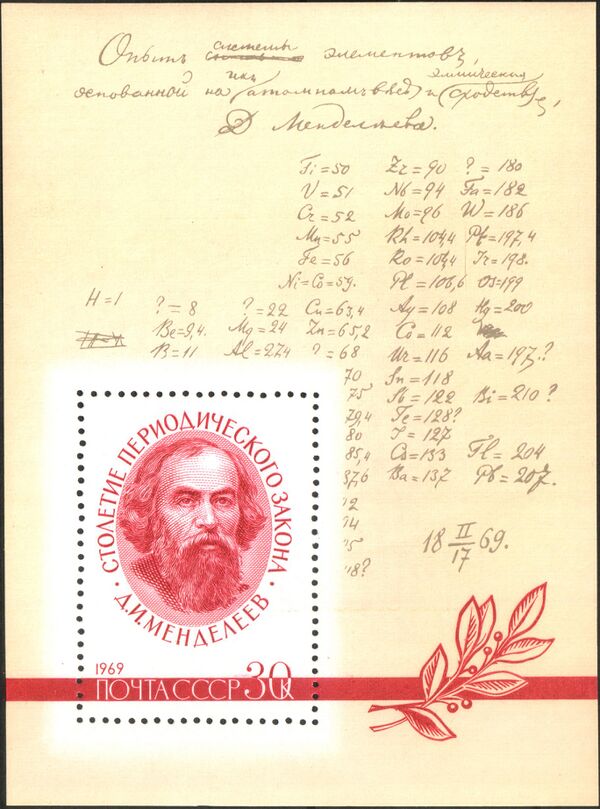 Опытъ системы элементовъ,
основанной на ихъ атомномъ вѣсѣ и химическомъ сходствѣ,
Д. Менделѣева.
Ti=50 Zr=90 ?=180
V=51 Nb=94 Ta=182
Cr=52 Mo=96 W=186
Mn=55 Rh=104,4 Pt=197,4
Fe=56 Ro=104,4 Ir=198.
Ni=Co=59. Pl=106,6 Os=199
H=1 ?=8 ?=22 Cu=63,4 Ag=108 Hg=200
Be=9,4. Mg=24 Zn=65,2 Cd=112
B=11 Al=27,4 ?=68 Ur=116 Au=197?
70 Sn=118
75 Sb=122 Bi=210?
79,4 Te=128?
80 J=127
85,4 Cs=133 Tl=204
87,6 Ba=137 Pb=207.
18 II/17 69.
18?
СТОЛЕТИЕ ПЕРИОДИЧЕСКОГО ЗАКОНА
· Д.И.МЕНДЕЛЕЕВ ·
1969
ПОЧТА СССР 30к